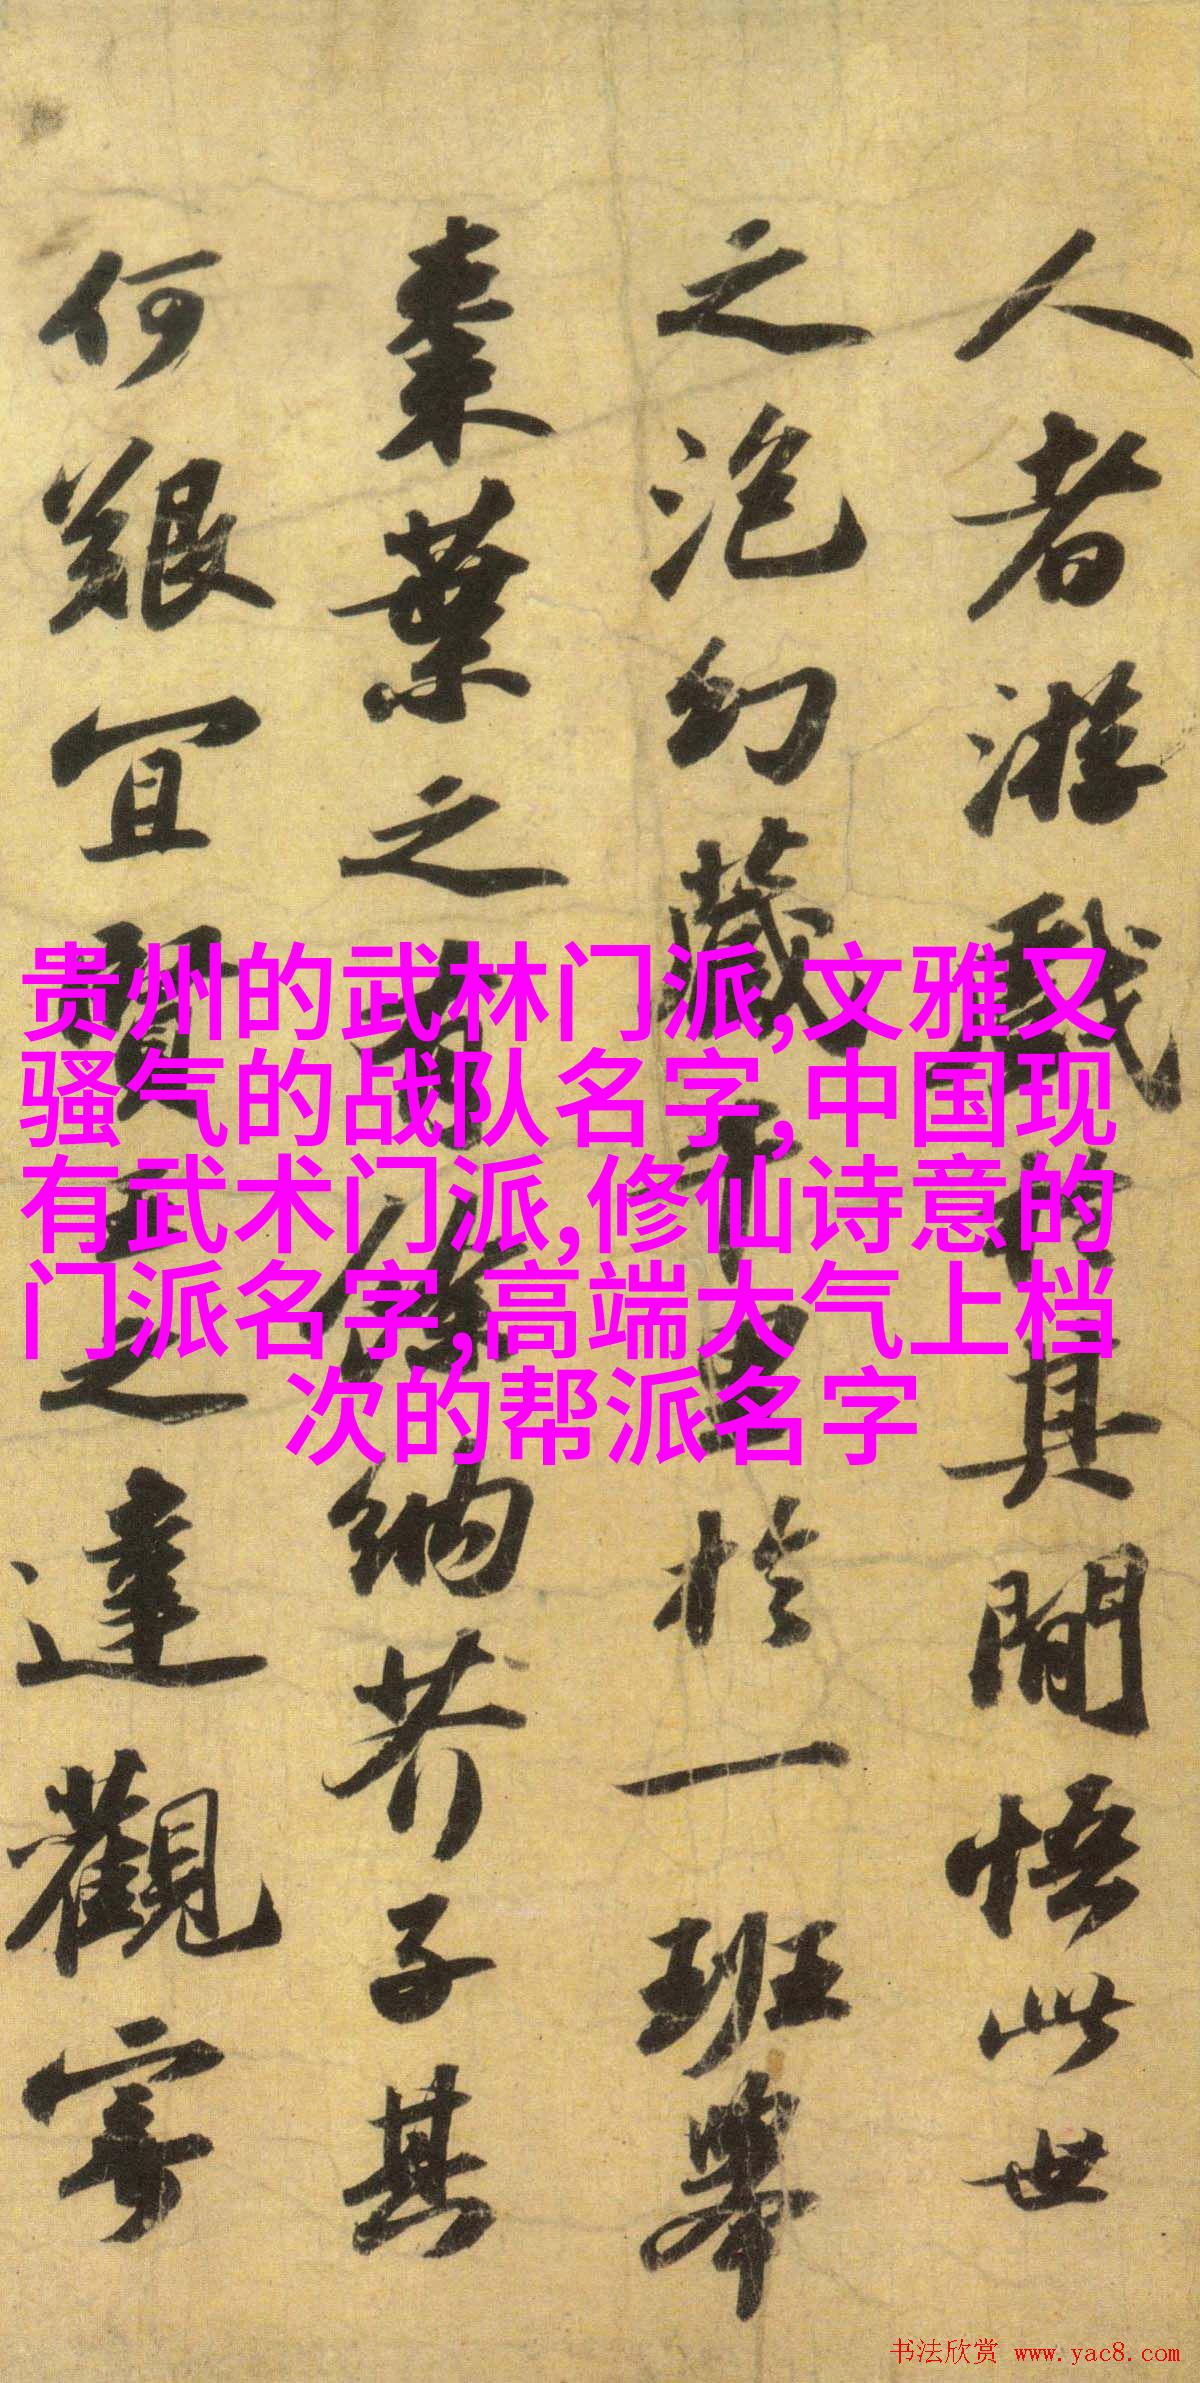 人者游戲於其間悟此世
之泡幻藏千里於一班舉
棗葉之有餘納芥子其
何艱宜賢王之達觀寄
贵州的武林门派,文雅又
骚气的战队名字,中国现
有武术门派,修仙诗意的
门派名字,高端大气上档
次的帮派名字
书法欣赏 www.yac8.com